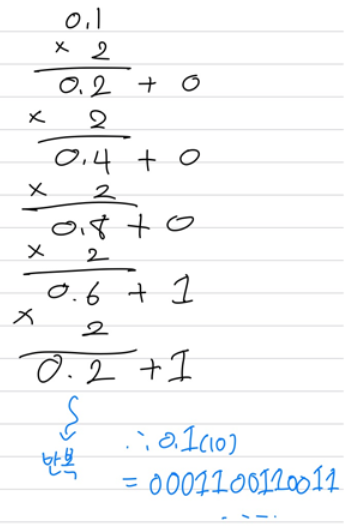 0.1
× 2
0.2 + 0
× 2
0.4 + 0
× 2
0.8 + 0
× 2
0.6 + 1
× 2
0.2 + 1
반복
∴ 0.1(10)
= 0001100110011
. - - .